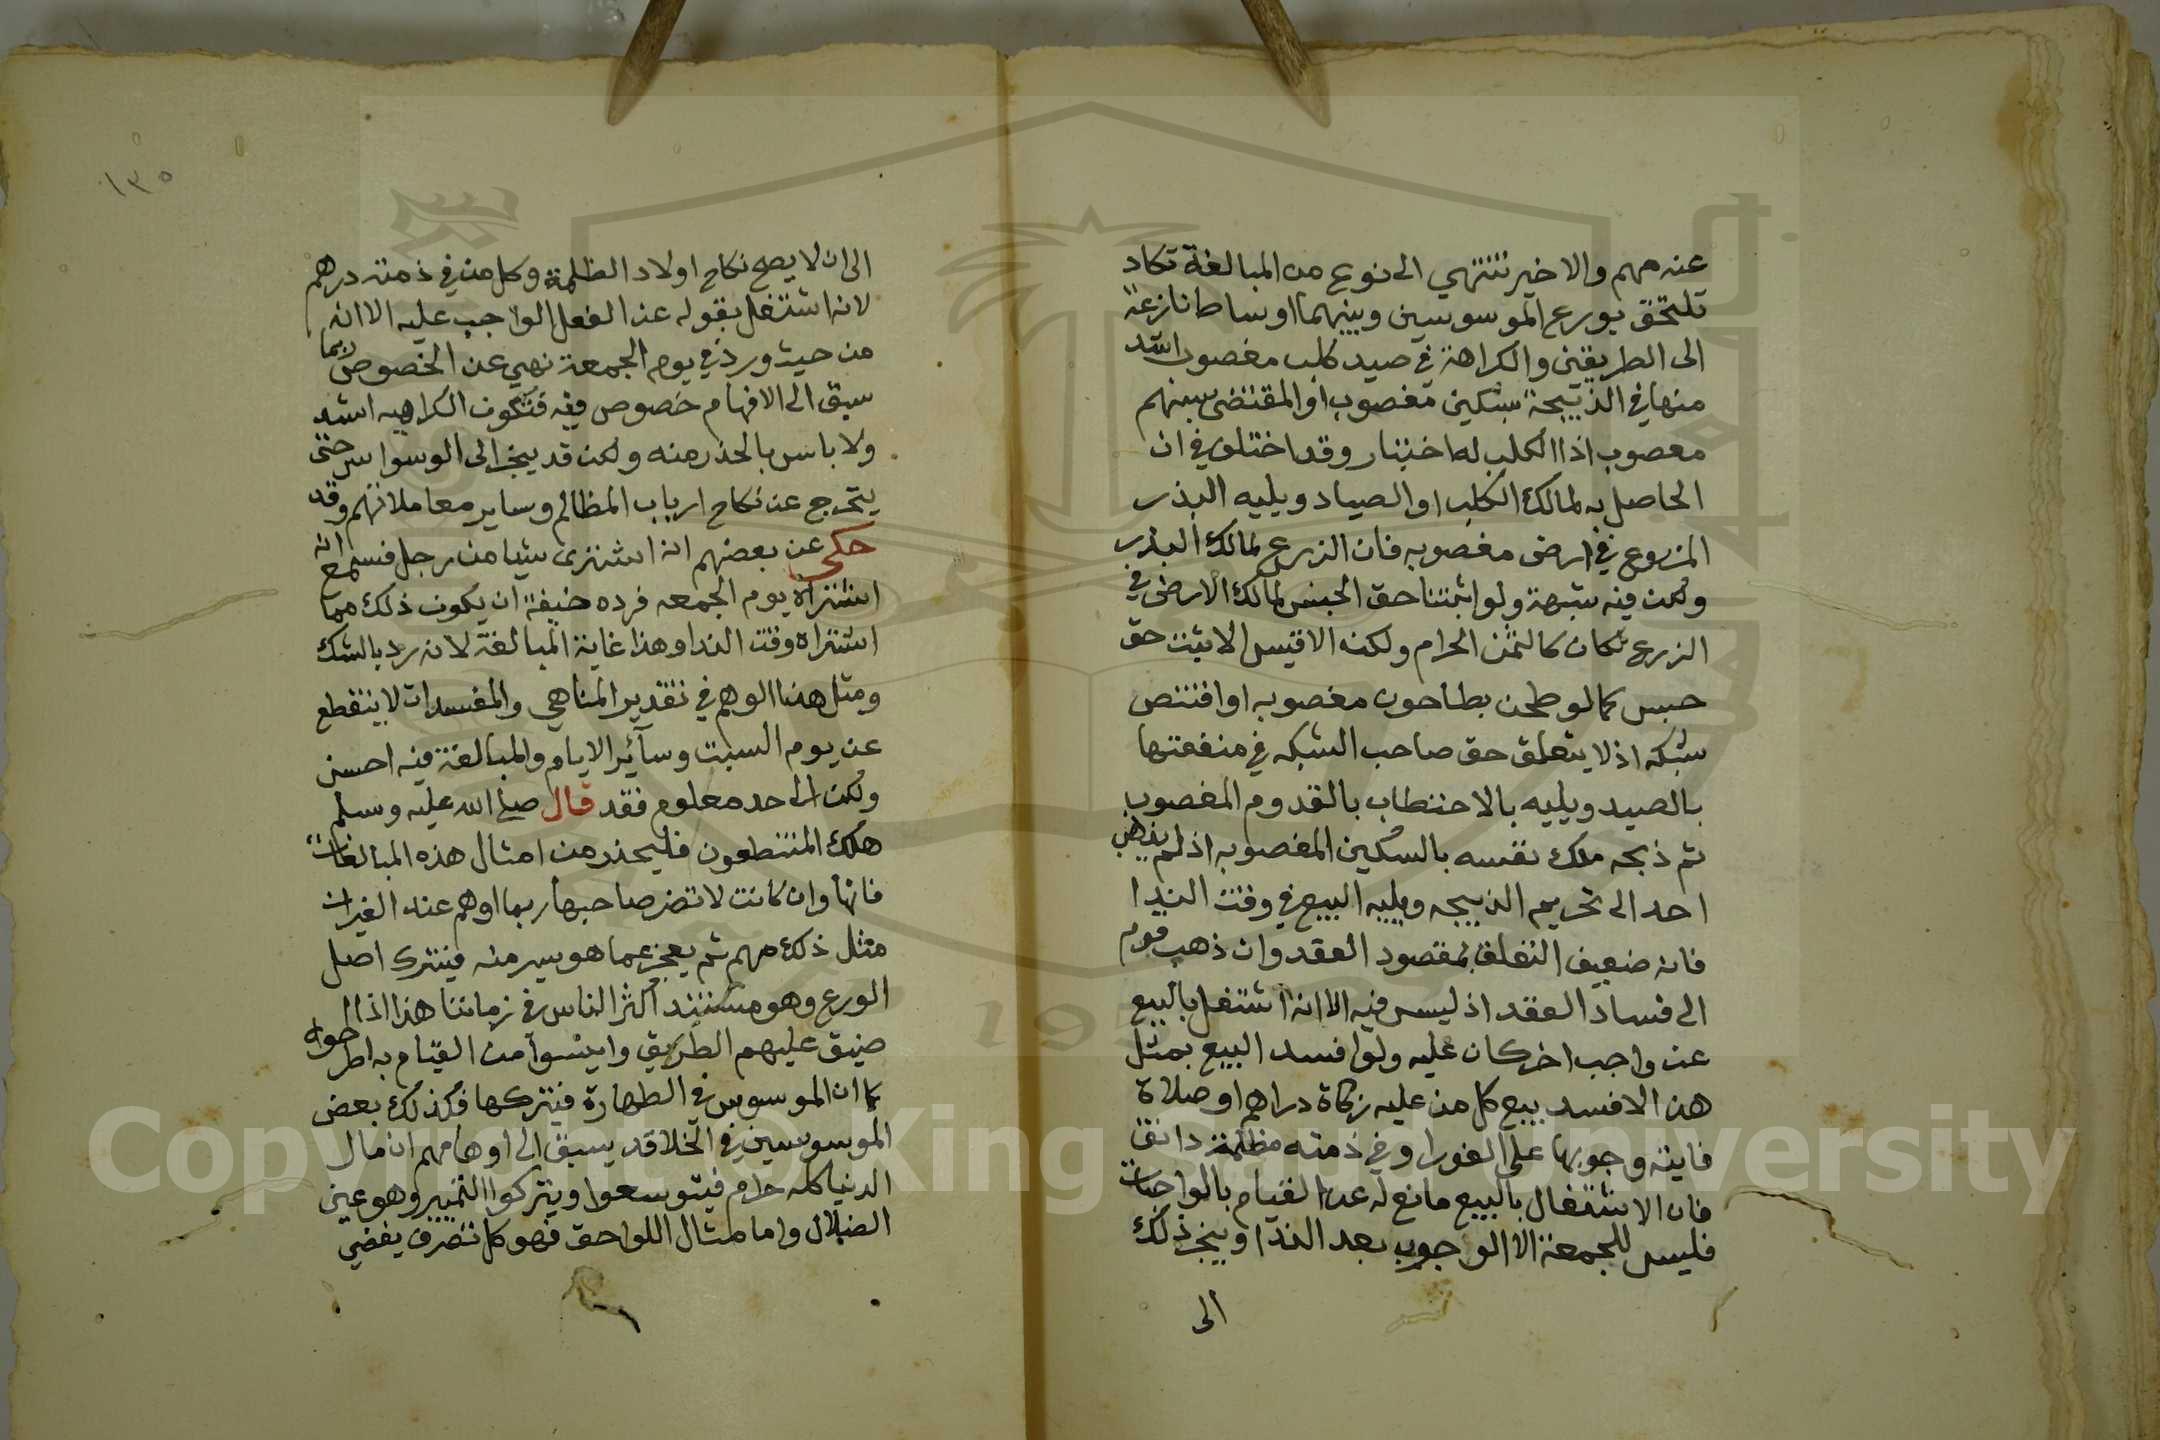 عنه مهم والاخير تنتهي الى نوع من المبالغة تكاد
تلتحق بورع الموسوسين وبينهما اوساط نازعة
الى الطريقين والكراهة في صيد كلب مغصوب اشد
منها في الذبيحة بسكين مغصوب او المقتضى بسهم
معصوب اذا الكلب له اختيار وقد اختلف في ان
الحاصل به لمالك الكلب او الصياد ويليه البذر
المزروع في ارض مغصوبه فان الزرع لمالك البذر
ولكن فيه شبهة ولو اثبتنا حق الحبس لمالك الارض في
الزرع لكان كالثمن الحرام ولكنه الاقيس الا يثبت حق
حبس كما لو طحن بطاحون مغصوبه او اقتنص
شبكه اذ لا يتعلق حق صاحب الشبكه في منفعتها
بالصيد ويليه بالاحتطاب بالقدوم المغصوب
ثم ذبحه ملك نفسه بالسكين المغصوبه اذ لم يذهب
احد الى تحريم الذبيحه ويليه البيع في وقت الندا
فانه ضعيف التعلق بمقصود العقد وان ذهب قوم
الى فساد العقد اذ ليس فيه الا انه اشتغل بالبيع
عن واجب اخر كان عليه ولو افسد البيع بمثل
هذا لافسد بيع كل من عليه زكاة دراهم او صلاة
فايته وجوبها على الفور او في ذمته مظلمة دانق
فان الاشتغال بالبيع مانع له عن القيام بالواجبات
فليس للجمعة الا الوجوب بعد الندا وينجر ذلك
الى
١٣٥
الى ان لا يصح نكاح اولاد الظلمة وكل من في ذمته درهم
لانه اشتغل بقوله عن الفعل الواجب عليه الا انه
من حيث ورد في يوم الجمعة نهي عن الخصوص ربما
سبق الى الافهام خصوص فيه فتكون الكراهيه اشد
ولا باس بالحذر منه ولكن قد ينجر الى الوسواس حتى
يتحرج عن نكاح ارباب المظالم وساير معاملاتهم وقد
حكى عن بعضهم انه اشترى شيا من رجل فسمع انه
اشتراه يوم الجمعه فرده خيفة ان يكون ذلك مما
اشتراه وقت الندا وهذا غاية المبالغة لانه رد بالشك
ومثل هذا الوهم في تقدير المناهي والمفسدات لا ينقطع
عن يوم السبت وسآئر الايام والمبالغة فيه احسن
ولكن الى حد معلوم فقد قال صلى الله عليه وسلم
هلك المتنطعون فليحذر من امثال هذه المبالغات
فانها وان كانت لا تضر صاحبها ربما اوهم عند الغير ان
مثل ذلك مهم ثم يعجز عما هو يسر منه فيترك اصل
الورع وهو مستند اكثر الناس في زماننا هذا اذ
ضيق عليهم الطريق وايسوا من القيام به اطرحوه
كما ان الموسوس في الطهارة فيتركها فكذلك بعض
الموسوسين في الحلا قد يسبق الى اوهامهم ان مال
الدنيا كله حرام فيتوسعوا ويتركوا التمييز وهو عين
الضلال واما مثال اللواحق فهو كل تصرف يفضي
Copyright © King Saud University